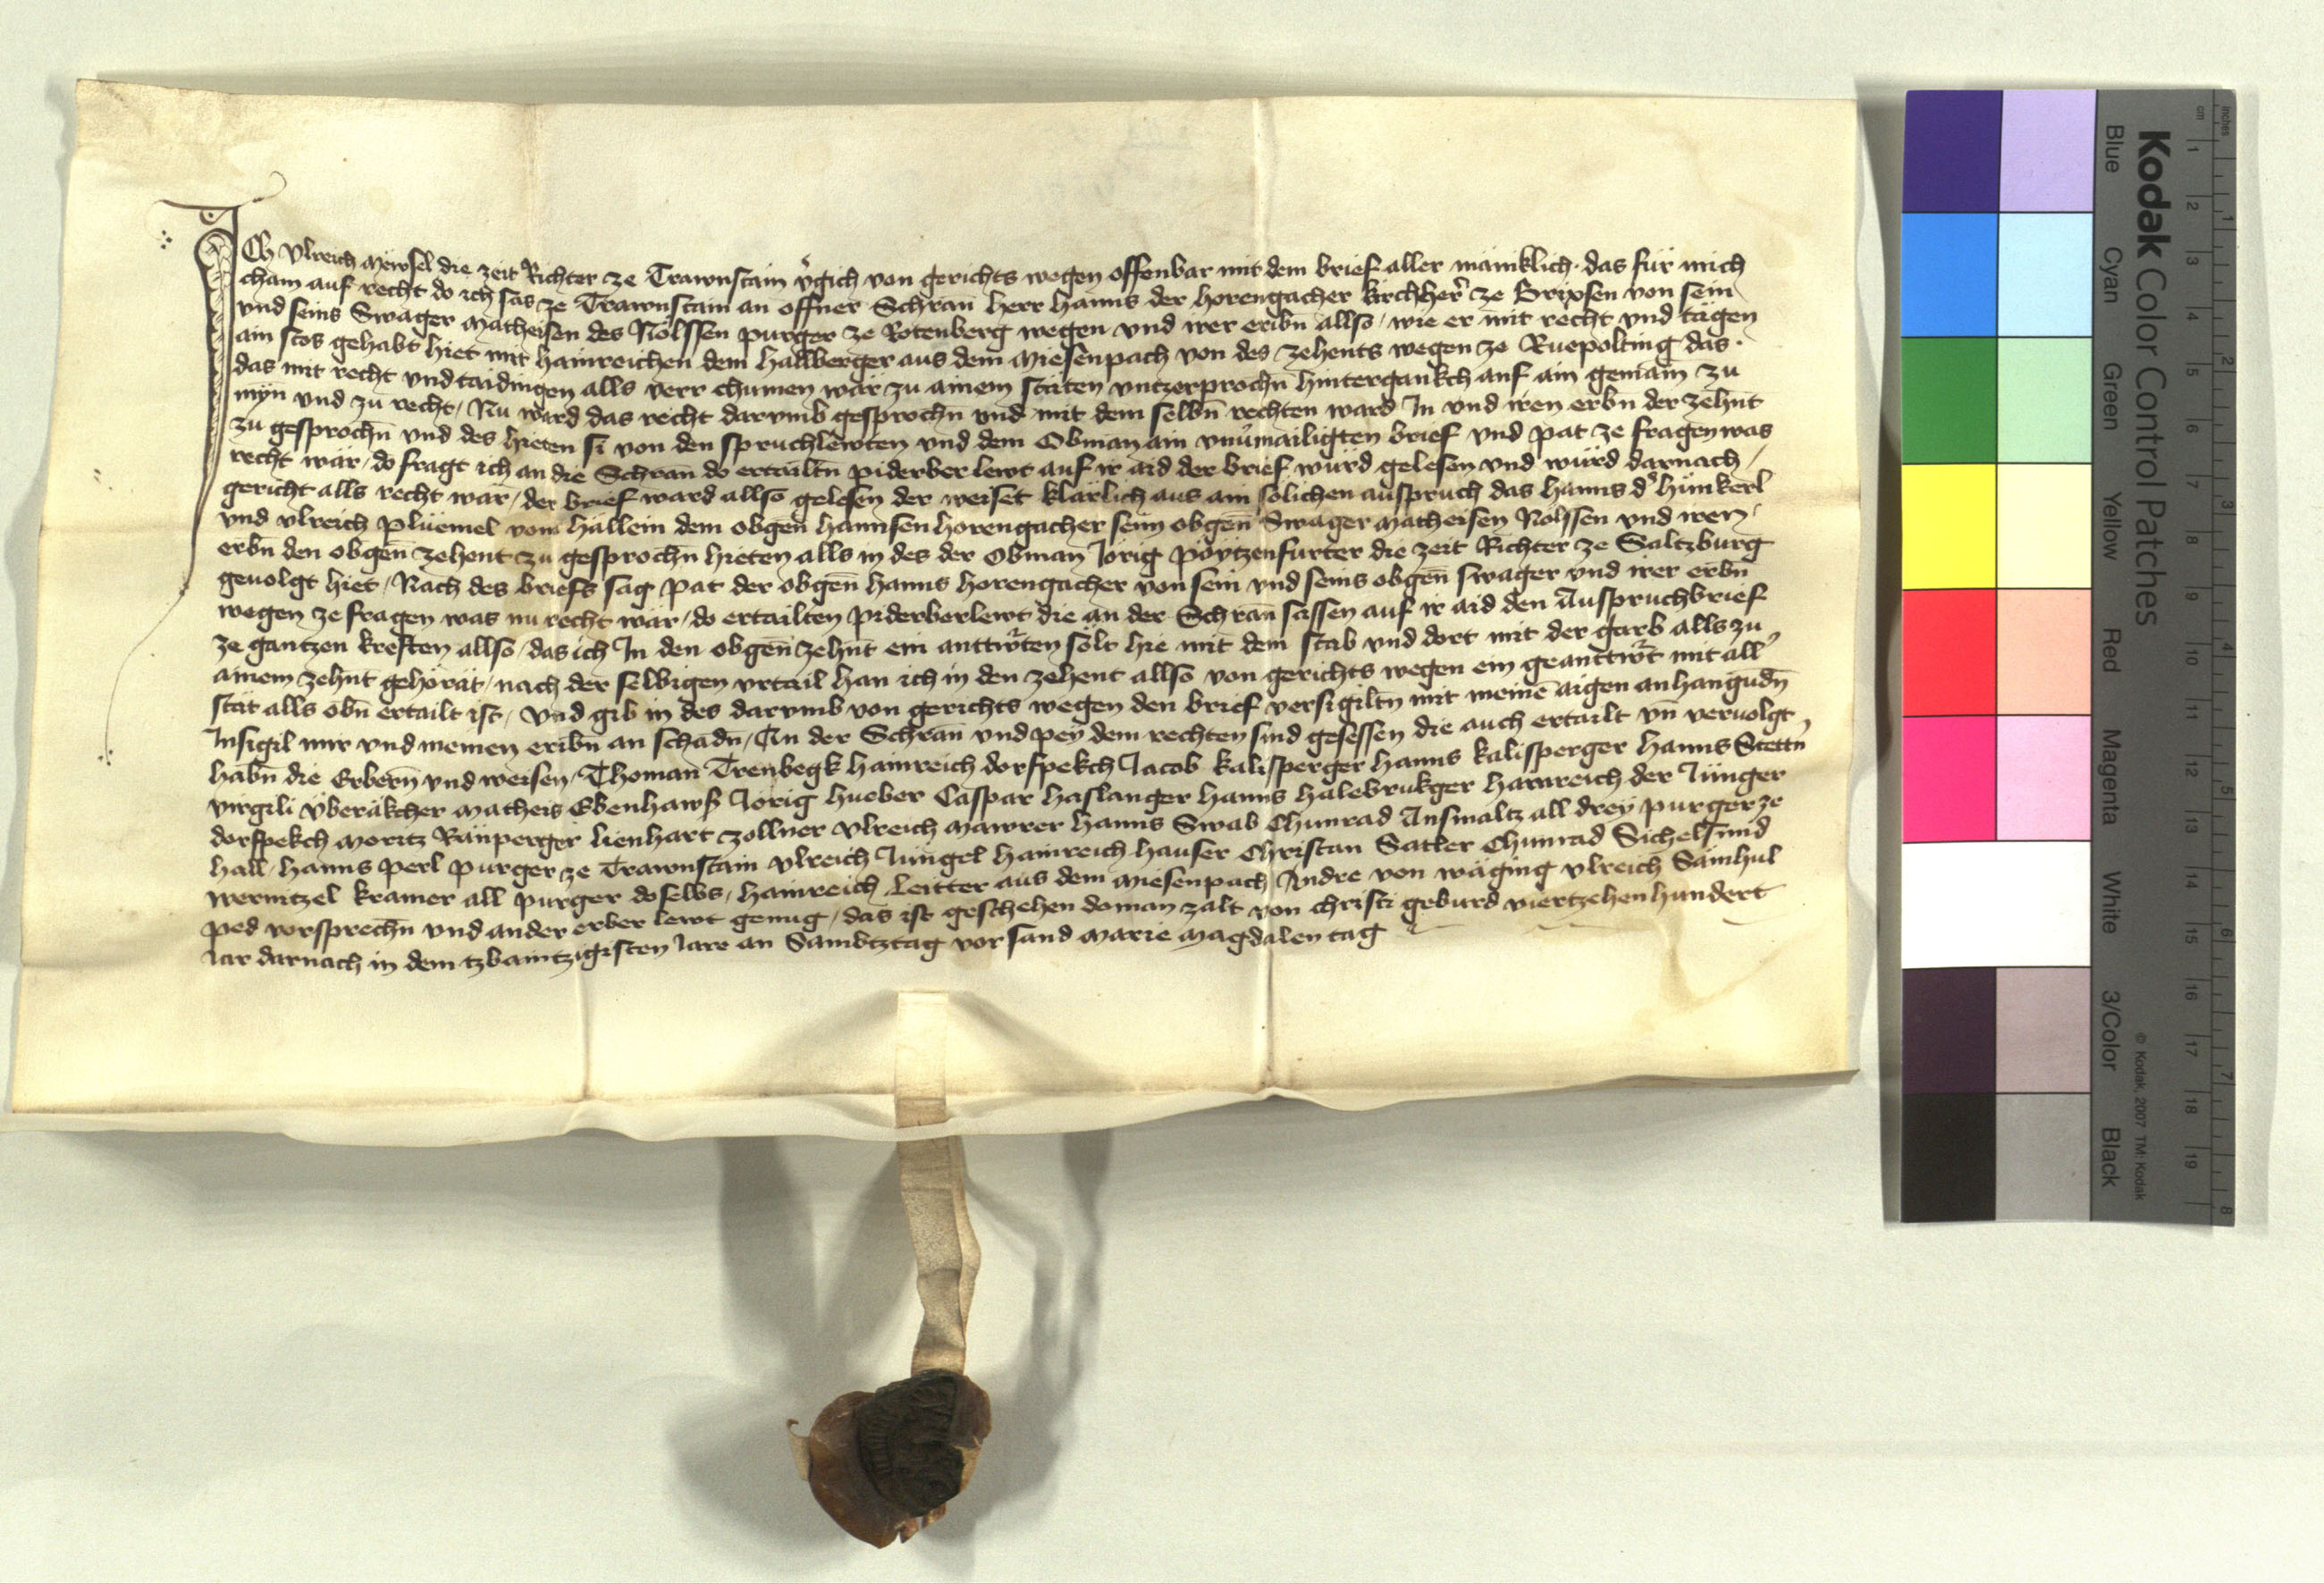 Ich Vlreich Mewsel die zeit Richter ze Trawnstain v͛gich von gerichts wegen offenbar mit dem brief aller mäniklich das für mich
cham auf recht do ich sas ze Trawnstain an offner Schran̄ herr hanns der horengacher kirchher͛ ze Brixsen von sein
vnd seins Swager Matheisen des Nölssen purger ze Rotenberg wegen vnd irer eribn̄ allso / wie er mit recht vnd tägen
ain stos gehabt hiet mit hainreichen dem hallberger aus dem Miesenpach von des zehents wegen ze Ruepolting das
das mit recht vnd taidingen alls verr chumen wär zu ainem stäten vntzerprochn̄ hintergankch auf ain gemain zu
myn̄ vnd zu recht / Nu ward das recht darvmb gesprochn̄ vnd mit dem selbn̄ rechten ward In vnd iren erbn̄ der zehn̄t
zu gesprochn̄ vnd des hieten si von den spruchlewten vnd dem Obman ain vnu͛mailigten brief vnd pat ze fragen was
recht wär / do fragt ich an die Schran̄ do ertailtn̄ piderber lewt auf ir aid der brief würd gelesen vnd würd darnach /
gericht alls recht wär / der brief ward allso gelesen der weiset klärlich aus ain sölichen ausspruch das hanns d͛ hünkerl
vnd vlreich plüemel vom hällein dem obgen̄ hannsen horengacher seim obgen̄ Swager Matheisen Nölssen vnd iren
erbn̄ den obgen̄ zehent zu gesprochn̄ hieten alls in des der Obman Jörig pöytzenfurter die zeit Richter ze Saltzburg
geuolgt hiet / Nach des briefs sag pat der obgen̄ hanns horengacher von sein vnd seins obgen̄ swager vnd irer erbn̄
wegen ze fragen was nu recht wär / do ertailten piderber lewt die an der Schran̄ sassen auf ir aid den Ausspruchbrief
ze gantzen kreften allso / das ich In den obgen̄ zehn̄t ein anttw͛rten sölt hie mit dem stab vnd dort mit der garb alls zu
ainem zehn̄t gehörät / nach der selbigen vrtail han ich in den zehent allso von gerichts wegen ein geanttw͛rt mit all͛
stät alls obn̄ ertailt ist / Vnd gib in des darvmb von gerichts wegen den brief versigiltn̄ mit meinē aigen anhangūdn̄
Insigil mir vnd meinen eribn̄ an schadn̄ / An der Schran̄ vnd pey dem rechten sind gesessen die auch ertailt vn̄ veruolgt
habn̄ die Erbern̄ vnd weisen / Thoman Trenbegk hainreich dorfpekch Jacob kalisperger hanns kalisperger hanns Stettn͛
virgili Vberäkcher Matheis Ebenhaws͛ Jörig hueber Caspar haslanger hanns halebrukger hainreich der Jünger
dorfpekch Moritz Ränperger lienhart zollner vlreich Mawrer hanns Swab Chunrad Ansmaltz all drey purger ze
hall / hanns perl purger ze Trawnstain vlreich Jüngel hainreich hauser Christan Satler Chunrad Sichelsmid
wernitzel kramer all purger doselbs / hainreich leitter aus dem Miesenpach Andre von wäging vlreich Sämhul
ped vorsprechn̄ vnd ander erber lewt genug / das ist geschehen do man zalt von christi geburd viertzehenhundert
Jar darnach in dem tzbaintzigisten Jare an Sambtztag vor sand Marie Magdalen tag
Kodak Color Control Patches
Blue Cyan Green Yellow Red Magenta White 3/Color Black
© Kodak, 2007 TM: Kodak
inches 1 2 3 4 5 6 7 8
cm 1 2 3 4 5 6 7 8 9 10 11 12 13 14 15 16 17 18 19